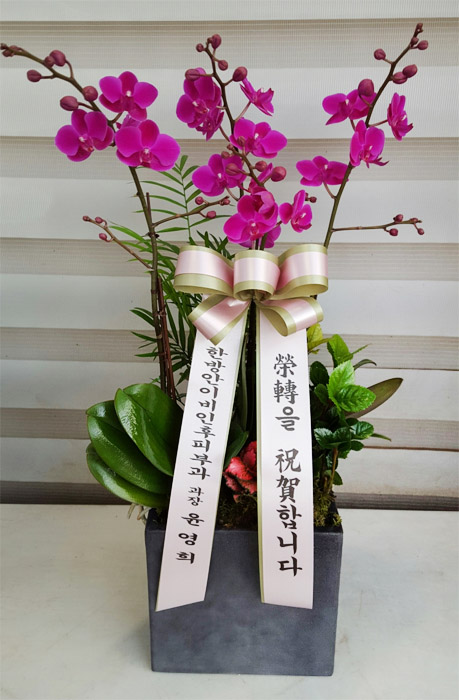 榮轉을 祝賀합니다
한방안이비인후피부과 과장 윤영희